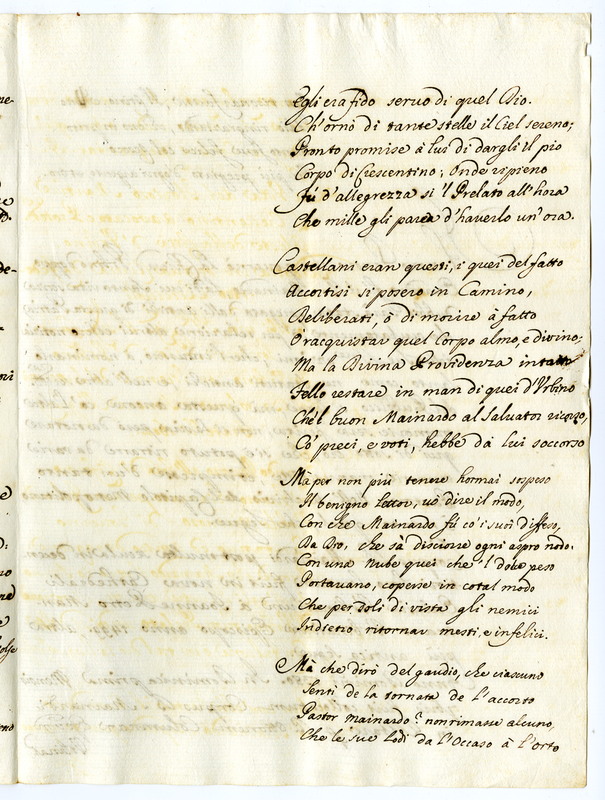 Egli era fido servo di quel Dio.
Ch'ornò di tante stelle il Ciel sereno;
Pronto promise à lui di dargli il pio
Corpo di Crescentino; onde ripieno
Fù d'allegrezza si 'l Prelato all'hora
Che mille gli parea d'haverlo un'ora.
Castellani eran questi, i quei del fatto
Accortisi si posero in Camino,
Deliberati, ò di morire à fatto
O racquistar quel Corpo almo, e divino;
Ma la Divina Providenza intatto
Fello restare in man di quei d'Urbino
Che'l buon Mainardo al Salvator ricorso,
Co' preci, e voti, hebbe da lui soccorso
Mà per non più tenere hormai sospeso
Il benigno Lettor, vò dire il modo,
Con che Mainardo fù co' i suoi diffeso,
Da Dio, che sà disciorre ogni aspro nodo.
Con una Nube quei che 'l dolce peso
Portavano, coperse in cotal modo
Che perdoli di vista gli nemici
Indietro ritornar mesti, e infelici.
Mà che dirò del gaudio, che ciascuno
Senti de la tornata de l'accorto
Pastor Mainardo? non rimase alcuno,
Che le sue lodi da l'Occaso à l'Orto